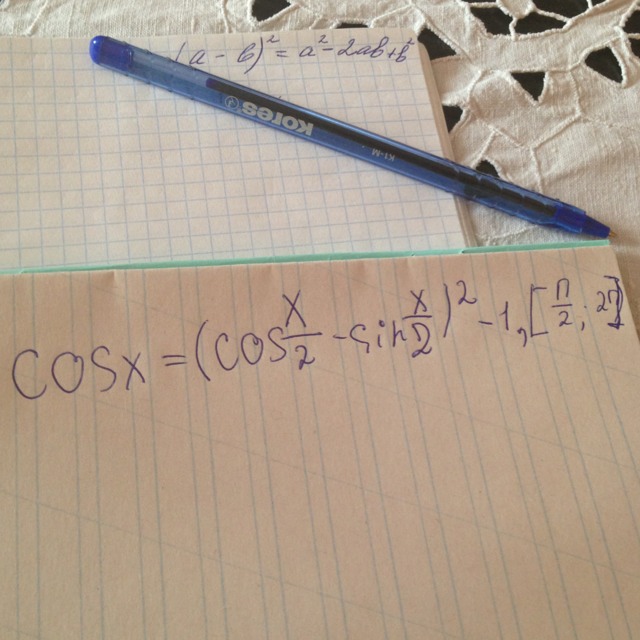 (a - b)² = a² - 2ab + b²
Kores K1-M
cosx = (cos x/2 - sin x/2)² - 1, [π/2; 2π]